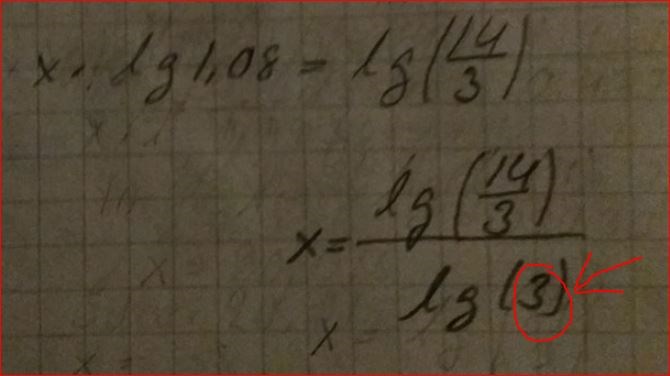 x · lg 1,08 = lg(14/3)
x = lg(14/3) / lg(3)